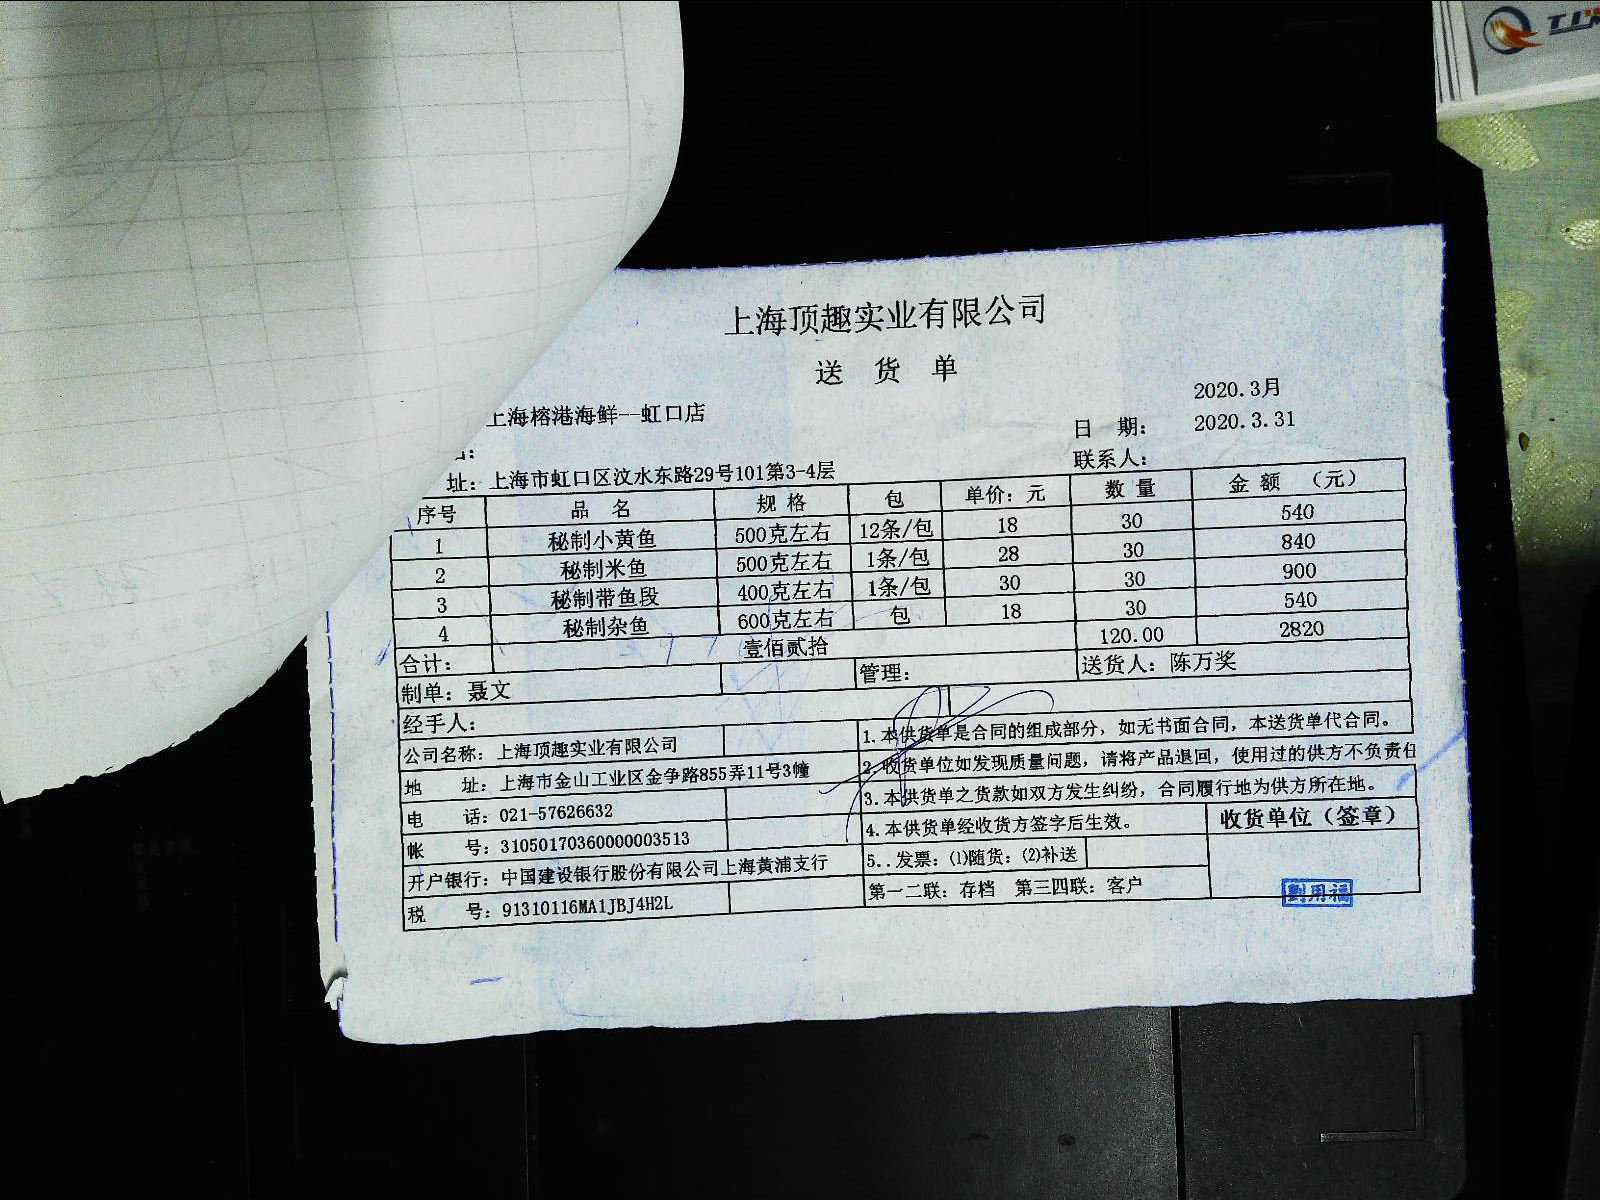 上海顶趣实业有限公司
送 货 单
2020.3月
上海榕港海鲜--虹口店
日 期： 2020.3.31
联系人：
址：上海市虹口区汶水东路29号101第3-4层
序号 品 名 规 格 包 单价：元 数 量 金 额 （元）
1 秘制小黄鱼 500克左右 12条/包 18 30 540
2 秘制米鱼 500克左右 1条/包 28 30 840
3 秘制带鱼段 400克左右 1条/包 30 30 900
4 秘制杂鱼 600克左右 包 18 30 540
合计： 壹佰贰拾 120.00 2820
制单：聂文 管理： 送货人：陈万奖
经手人：
公司名称：上海顶趣实业有限公司
地 址：上海市金山工业区金争路855弄11号3幢
电 话：021-57626632
帐 号：31050170360000003513
开户银行：中国建设银行股份有限公司上海黄浦支行
税 号：91310116MA1JBJ4H2L
1.本供货单是合同的组成部分，如无书面合同，本送货单代合同。
2.收货单位如发现质量问题，请将产品退回，使用过的供方不负责任
3.本供货单之货款如双方发生纠纷，合同履行地为供方所在地。
4.本供货单经收货方签字后生效。
5..发票：⑴随货：⑵补送
第一二联：存档 第三四联：客户
收货单位（签章）
劉用福